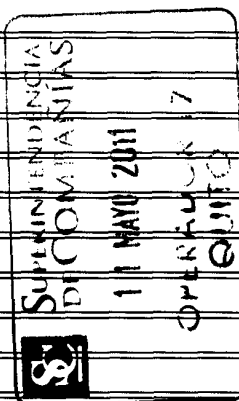 SUPERINTENDENCIA
DE COMPAÑÍAS
11 MAYO 2011
OPERADOR 17
QUITO